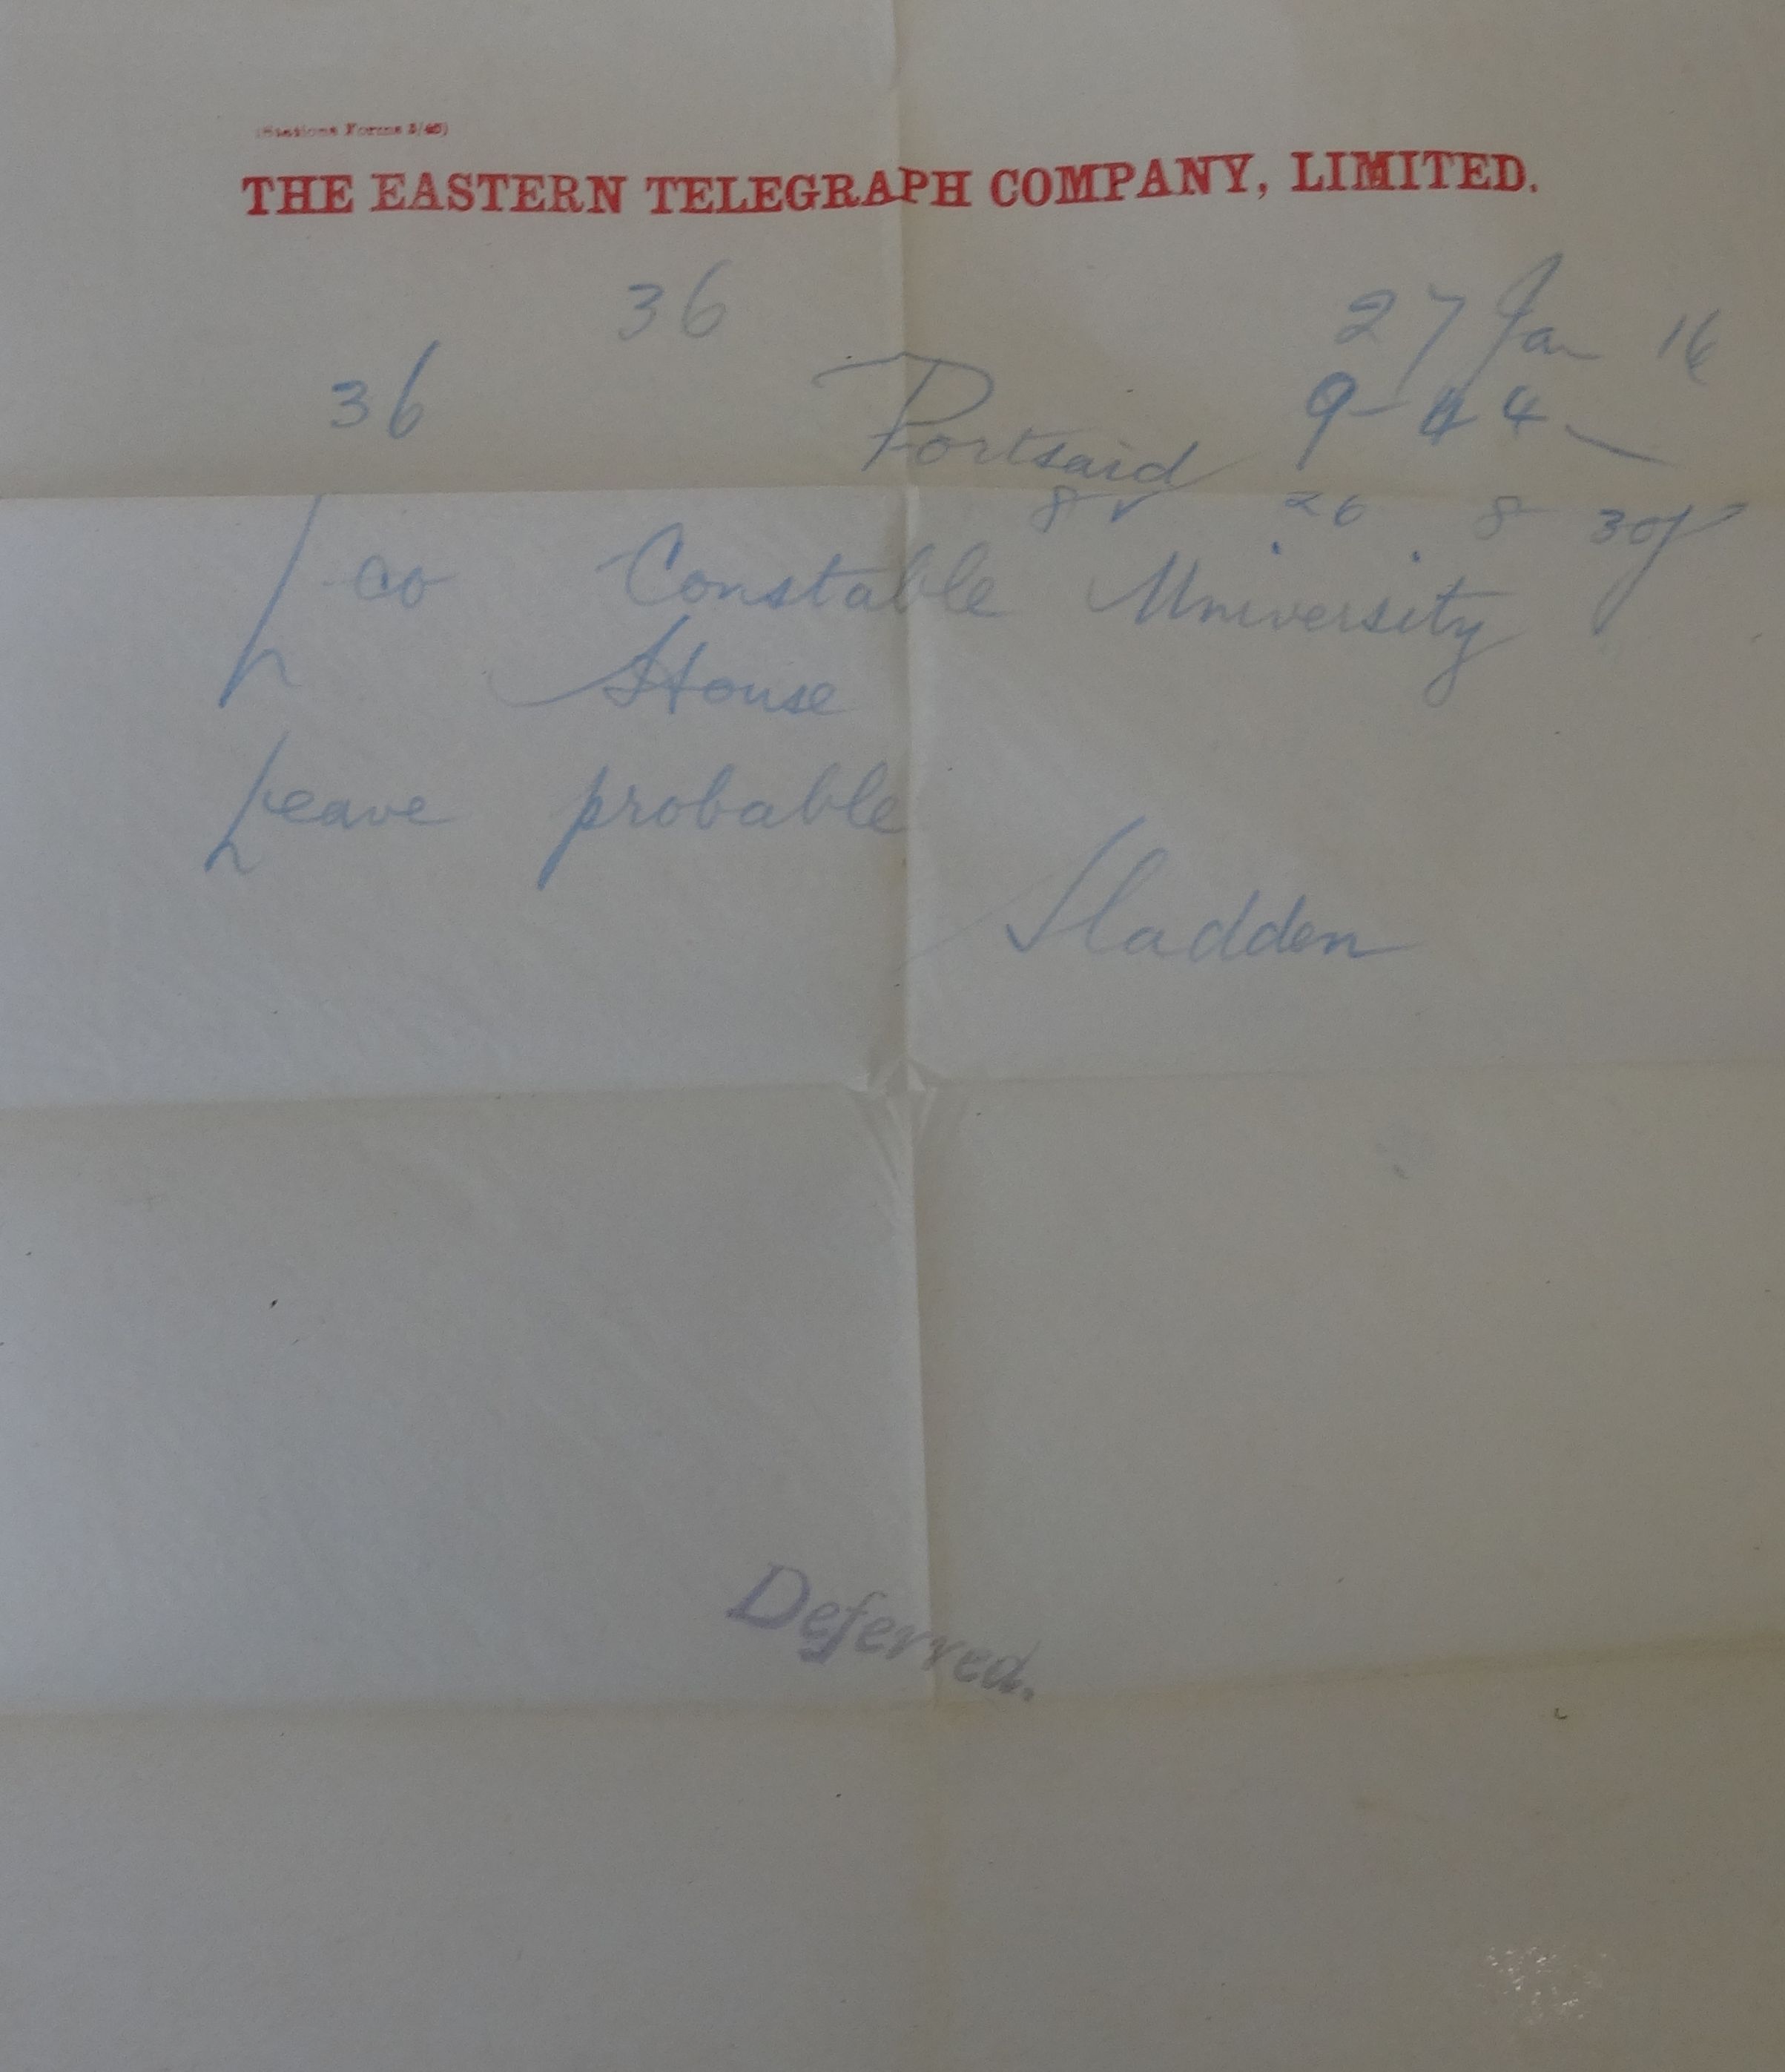 (Stations Forms 3/40)
THE EASTERN TELEGRAPH COMPANY, LIMITED.
36 27 Jan 16
36 Portsaid 9-44
8 26 8 30p
Lco Constable University
House
Leave probable
Sladden
Deferred.